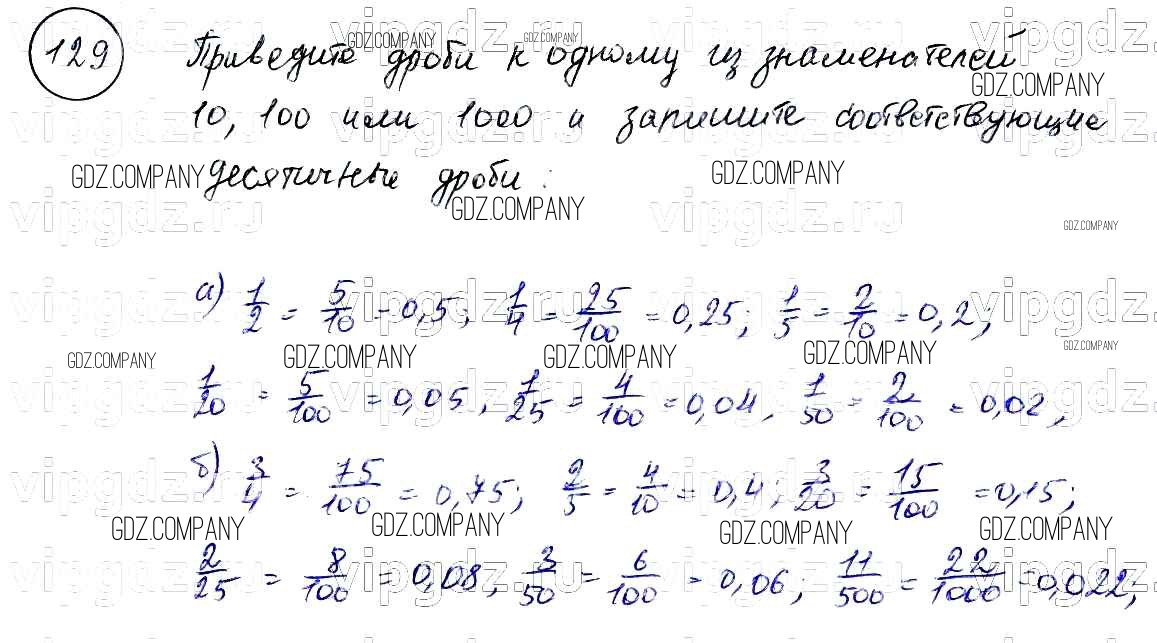 129 Приведите дроби к одному из знаменателей
10, 100 или 1000 и запишите соответствующие
десятичные дроби:
а) 1/2 = 5/10 = 0,5; 1/4 = 25/100 = 0,25; 1/5 = 2/10 = 0,2;
1/20 = 5/100 = 0,05, 1/25 = 4/100 = 0,04, 1/50 = 2/100 = 0,02;
б) 3/4 = 75/100 = 0,75; 2/5 = 4/10 = 0,4; 3/20 = 15/100 = 0,15;
2/25 = 8/100 = 0,08; 3/50 = 6/100 = 0,06; 11/500 = 22/1000 = 0,022;
GDZ.COMPANY
vipgdz.ru